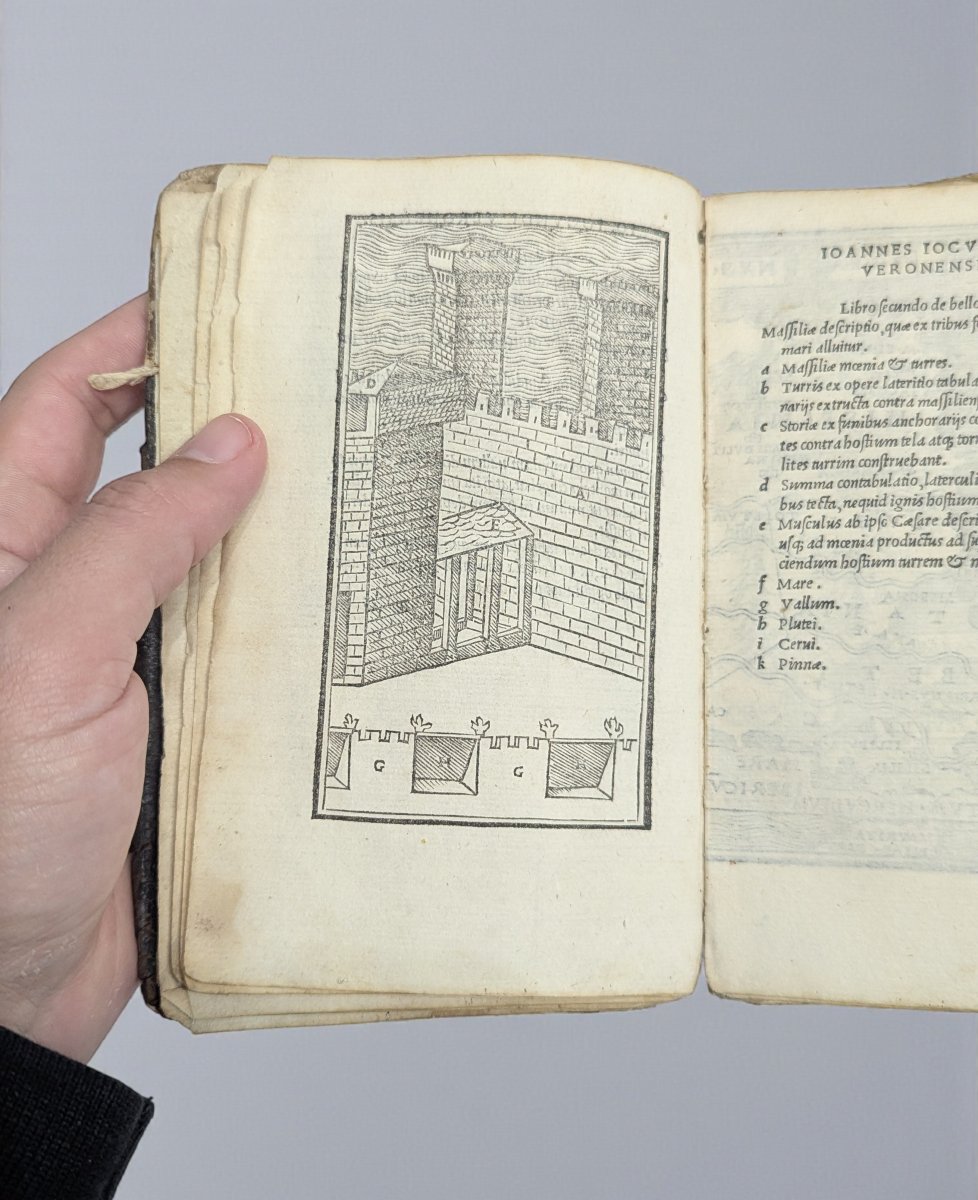 D
A
E
G
H
G
H
IOANNES IOCV
VERONENS
Libro secundo de bello
Massiliæ descriptio, quæ ex tribus
mari alluitur.
a Massiliæ mœnia & turres.
b Turris ex opere lateritio tabula
narijs extructa contra massilien
c Storiæ ex funibus anchorarijs co
tes contra hostium tela atq; tor
lites turrim construebant.
d Summa contabulatio, laterculi
bus tecta, nequid ignis hostium
e Musculus ab ipso Cæsare descri
usq; ad mœnia productus ad su
ciendum hostium turrem & m
f Mare.
g Vallum.
h Plutei.
i Cerui.
k Pinnæ.